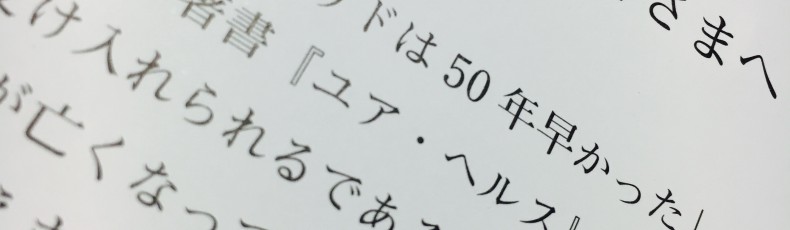 さまへ
ドは50年早かった」
著書『ユア・ヘルス』
け入れられるであ
が亡くなっ